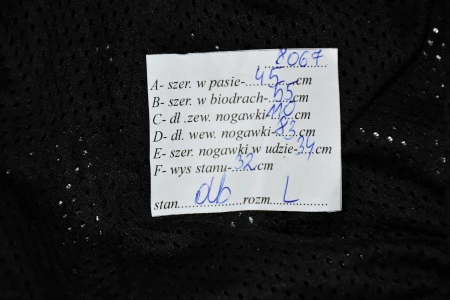 8067
A- szer. w pasie-....45....cm
B- szer. w biodrach-..55..cm
C- dł .zew. nogawki-110cm
D- dł. wew. nogawki-.83.cm
E- szer. nogawki w udzie-34cm
F- wys stanu-.32.cm
stan....db..........rozm...L.......